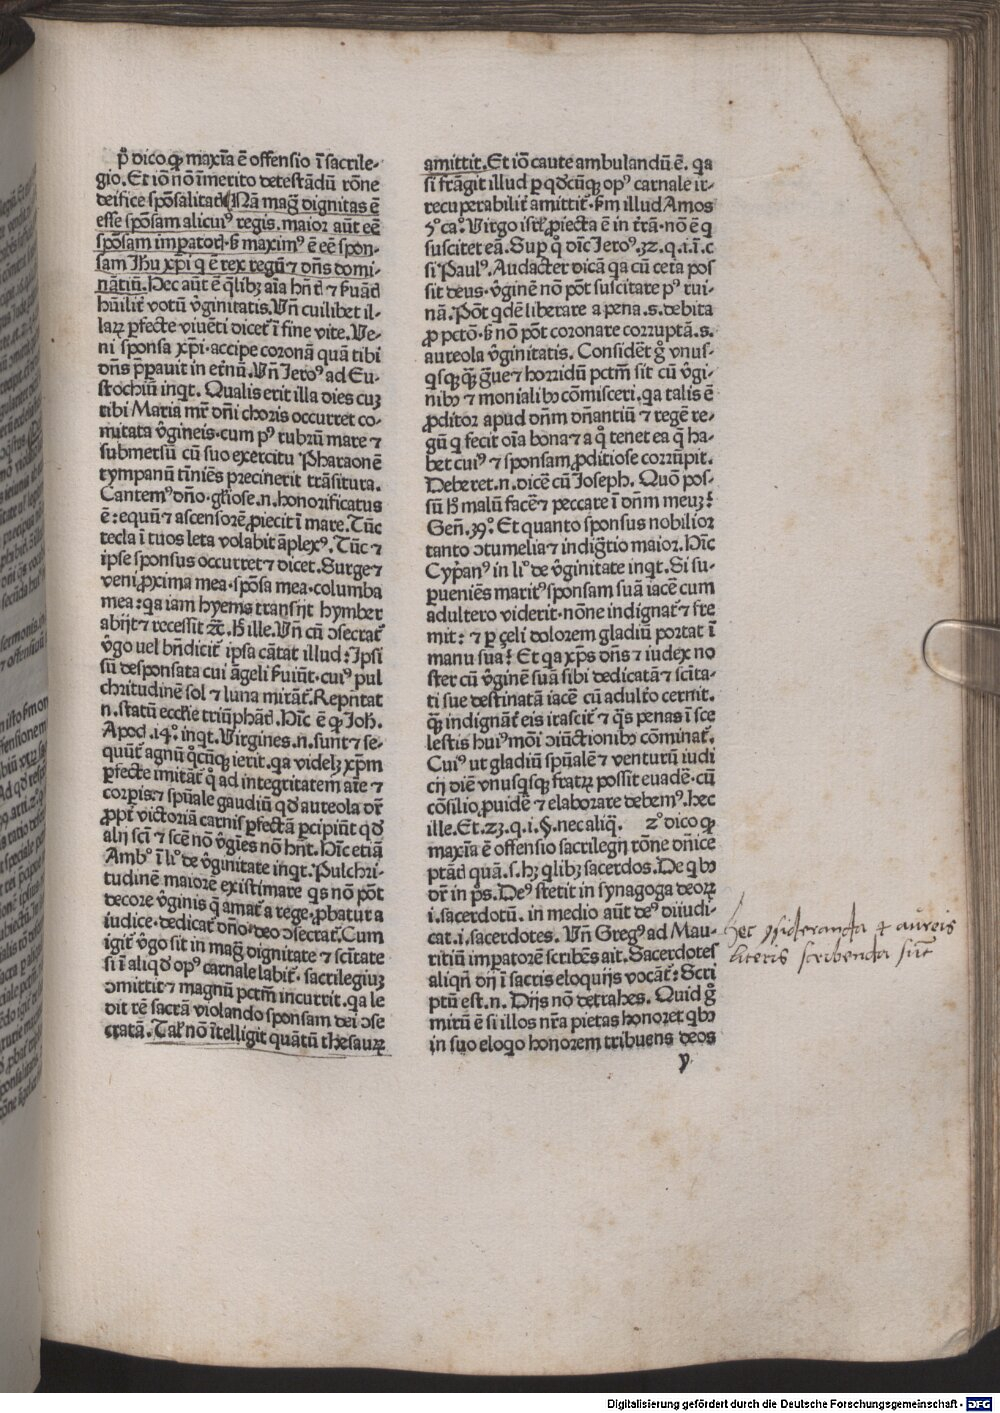 p̄ dico ꝙ maxīa ē offensio ī sacrile-
gio. Et iō nō īmerito detestādū rōne
deifice spōsalitatꝭ Nā maḡ dignitas ē
esse spōsam alicuiꝰ regis. maior aūt eē
spōsam imꝑatorꝭ. ꝫ maximꝰ ē eē spon-
sam Jhu xp̄i q ē rex regū ⁊ dn̄s domi-
nātiū. Hec aūt ē q̄libꝫ aīa hn̄s ⁊ ẜuās
hūilit̄ votū v̄ginitatis. Vn̄ cuilibet il-
laꝝ ꝑfecte viuēti dicet̄ ī fine vite. Ve-
ni sponsa xp̄i. accipe coronā quā tibi
dn̄s p̄parauit in et̄nū. Vn̄ Jeroꝰ ad Eu-
stochiū inqt. Qualis erit illa dies cuꝫ
tibi Maria mr̄ dn̄i choris occurret co-
mitata v̄gineis. cum pꝰ rubrū mare ⁊
submersū cū suo exercitu Pharaonē
tympanū tīniēs precinerit trāsitura.
Cantemꝰ dn̄o. gl̄iose. n. honorificatus
ē: equū ⁊ ascensorē ꝓiecit ī mare. Tūc
tecla ī tuos leta volabit āplexꝰ. Tūc ⁊
ipse sponsus occurret ⁊ dicet. Surge ⁊
veni ꝓxima mea. spōsa mea. columba
mea: qa iam hyems transijt hymber
abijt ⁊ recessit ⁊c̄. H̄ ille. Vn̄ cū ↄsecrat̄
v̄go uel bn̄dicit̄ ipsa cātat illud: Ipsi
sū desponsata cui āgeli ẜuiūt. cuiꝰ pul
chritudinē sol ⁊ luna mirāt̄. Rep̄ntat
n. statū eccl̄ie triūphātꝭ. Hīc ē ꝙ Joh̄.
Apoc̄. 14°. inqt. Virgines. n. sunt ⁊ se-
quūt̄ agnū q̊cūqꝫ ierit. qa videlꝫ xp̄m
ꝑfecte imitāt̄ q̊ ad integritatem aīe ⁊
corꝑis: ⁊ spūale gaudiū qd̄ aureola dr̄
ꝓpt̄ victoriā carnis ꝑfectā ꝑcipiūt qd̄
alij scī ⁊ scē nō v̄gīes nō hn̄t. Hīc etiā
Ambꝰ ī li° de v̄ginitate inqt. Pulchri-
tudinē maiorē existimare qs nō pōt
decore v̄ginis q̄ amat̄ a rege. ꝓbatur a
iudice. dedicat̄ dn̄o. deo ↄsecrat̄. Cum
igit̄ v̄go sit in maḡ dignitate ⁊ scītate
si ī aliqd̄ opꝰ carnale labit̄. sacrilegiuꝫ
ↄmittit ⁊ magnū pctm̄ incurrit. qa le
dit rē sacrā violando sponsam dei ↄse
cratā. Tal̄ nō ītelligit quātū thesauꝝ
amittit. Et iō caute ambulandū ē. qa
si frāgit illud ꝑ qd̄cūqꝫ opꝰ carnale ir-
recuperabilit̄ amittit. ẜm illud Amos
5° ca°. Virgo isrl̄ ꝓiecta ē in t̄rā. nō ē q
suscitet eā. Suꝑ q̊ dīc Jeroꝰ. 32. q. 1. ī. c
si Paulꝰ. Audacter dicā qa cū ceta pos
sit deus. v̄ginē nō pōt suscitare pꝰ rui-
nā. Pōt qdē liberare a pena. s. debita
ꝓ pctō. ꝫ nō pōt coronare corruptā. s.
aureola v̄ginitatis. Considēt g̊ vnus-
qsqꝫ qꝫ g̊ue ⁊ horridū pctm̄ sit cū v̄gi-
nibꝫ ⁊ monialibꝫ cōmisceri. qa talis ē
ꝓditor apud dn̄m dn̄antiū ⁊ regē re-
gū q fecit oīa bona ⁊ a q̊ tenet ea q̄ ha-
bet cuiꝰ ⁊ sponsam ꝓditiose corrūpit.
Deberet. n. dicē cū Joseph. Quō pos-
sū h̄ malū facē ⁊ peccare ī dn̄m meuꝫ?
Gen̄. 39°. Et quanto sponsus nobilior
tanto ↄtumelia ⁊ indiḡtio maior. Hīc
Cyp̄anꝰ in li° de v̄ginitate inqt. Si su-
ꝑueniēs maritꝰ sponsam suā iacē cum
adultero viderit. nōne indignat̄ ⁊ fre
mit: ⁊ ꝑ çeli dolorem gladiū portat ī
manu sua? Et qa xp̄s dn̄s ⁊ iudex no
ster cū v̄ginē suā sibi dedicatā ⁊ scīta-
ti sue destinatā iacē cū adult̄o cernit.
qꝫ indignāt̄ eis irascit̄ ⁊ q̄s penas ī sce
lestis huiꝰmōi ↄiūctionibꝫ cōminat̄.
Cuiꝰ ut gladiū spūalē ⁊ venturū iudi
cij diē vnusqsqꝫ fratꝝ possit euadē. cū
cōsilio ꝓuidē ⁊ elaborare debemꝰ. hec
ille. Et. 23. q. 1. §. nec aliq̄. 2° dico ꝙ
maxīa ē offensio sacrilegij rōne dn̄ice
ptātꝭ quā. s. hꝫ qlibꝫ sacerdos. De qbꝫ
dr̄ in ps̄. Deꝰ stetit in synagoga deoꝝ
i. sacerdotū. in medio aūt deꝰ dijudi-
cat. i. sacerdotes. Vn̄ Gregꝰ ad Mau-
ritiū imꝑatorē scribēs ait. Sacerdotes
aliqn̄ dij ī sacris eloquijs vocāt̄: Scri
ptū est. n. Dijs nō detrahes. Quid g̊
mirū ē si illos nr̄a pietas honoret qbꝫ
in suo eloqo honorem tribuens deos
y
hec ↄsideranda ⁊ aureis
literis scribenda sūt
Digitalisierung gefördert durch die Deutsche Forschungsgemeinschaft - DFG